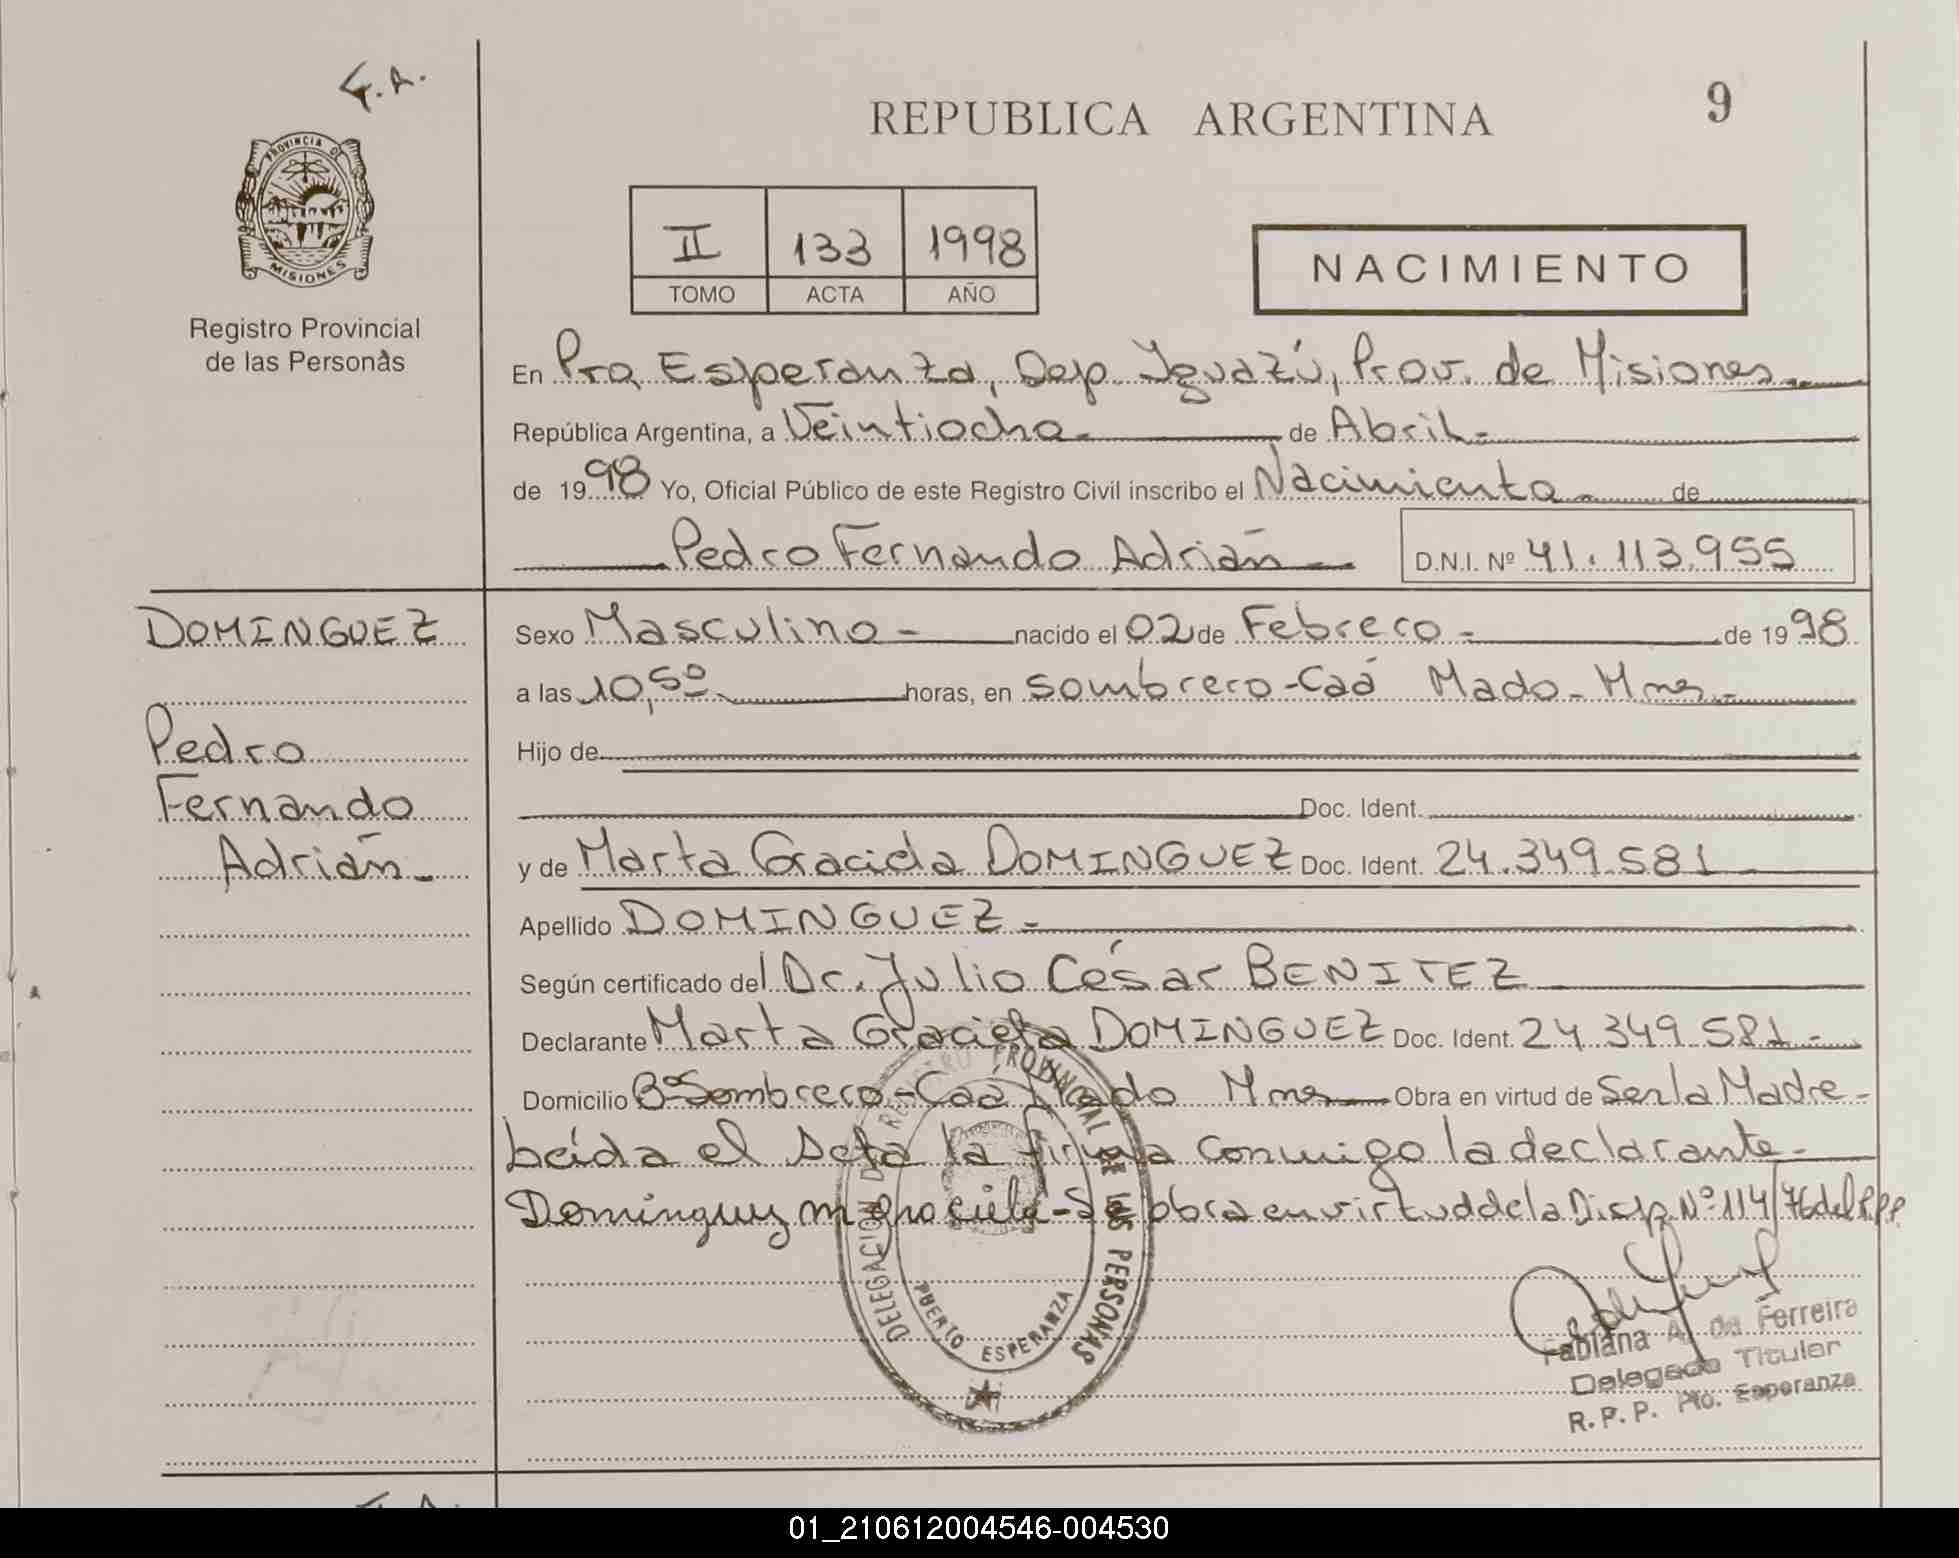 F.A.
REPUBLICA ARGENTINA
9
PROVINCIA DE
MISIONES
Registro Provincial
de las Personas
II 133 1998
TOMO ACTA AÑO
NACIMIENTO
En Pto. Esperanza, Dep. Iguazú, Prov. de Misiones.-
República Argentina, a Veintiocho.- de Abril.-
de 1998 Yo, Oficial Público de este Registro Civil inscribo el Nacimiento.- de
Pedro Fernando Adrián
D.N.I. Nº 41.113.955
DOMINGUEZ
Pedro
Fernando
Adrián.-
Sexo Masculino.- nacido el 02 de Febrero.- de 1998
a las 10,50 horas, en Sombrero-Caá Mado- Mnes.-
Hijo de
Doc. Ident.
y de Marta Graciela DOMINGUEZ Doc. Ident. 24.349.581
Apellido DOMINGUEZ.-
Según certificado del Dr. Julio César BENITEZ
Declarante Marta Graciela DOMINGUEZ Doc. Ident. 24.349.581.-
Domicilio Bº Sombrero-Caá Mado Mnes Obra en virtud de Ser la Madre-
Leída el Acta la firma conmigo la declarante-
Dominguez m graciela-Se obra en virtud de la Disp. Nº 114/76 del R.P.P.
DELEGACION DEL REGISTRO PROVINCIAL DE LAS PERSONAS
PUERTO ESPERANZA
Fabiana A. de Ferreira
Delegada Titular
R.P.P. Pto. Esperanza
01_210612004546-004530